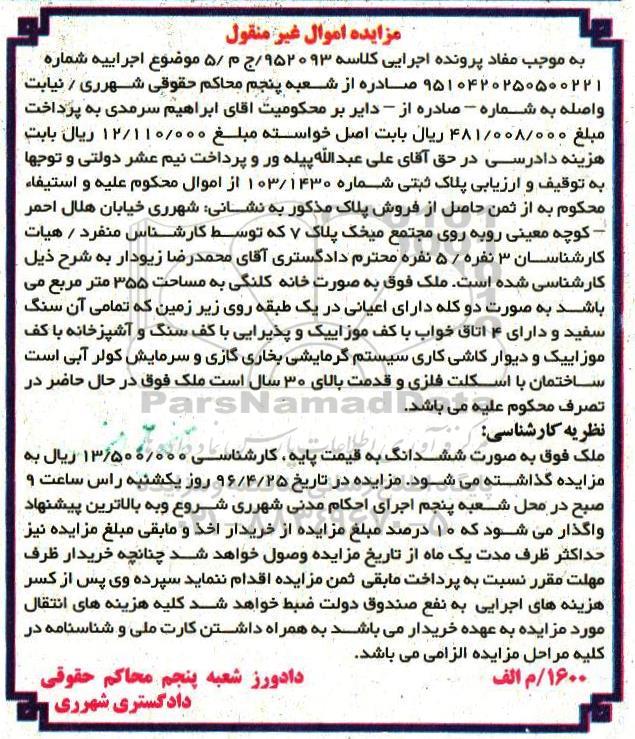 مزایده اموال غیر منقول
به موجب مفاد پرونده اجرایی کلاسه ۹۵۲۰۹۳/ج م /۵ موضوع اجراییه شماره
۹۵۱۰۴۲۰۲۵۰۵۰۰۲۲۱ صادره از شعبه پنجم محاکم حقوقی شهرری / نیابت
واصله به شماره – صادره از – دایر بر محکومیت اقای ابراهیم سرمدی به پرداخت
مبلغ ۴۸۱/۰۰۸/۰۰۰ ریال بابت اصل خواسته مبلغ ۱۲/۱۱۰/۰۰۰ ریال بابت
هزینه دادرسی در حق آقای علی عبدالله‌پیله ور و پرداخت نیم عشر دولتی و توجها
به توقیف و ارزیابی پلاک ثبتی شماره ۱۰۳/۱۴۳۰ از اموال محکوم علیه و استیفاء
محکوم به از ثمن حاصل از فروش پلاک مذکور به نشانی: شهرری خیابان هلال احمر
– کوچه معینی روبه روی مجتمع میخک پلاک ۷ که توسط کارشناس منفرد / هیات
کارشناسان ۳ نفره / ۵ نفره محترم دادگستری آقای محمدرضا زیودار به شرح ذیل
کارشناسی شده است. ملک فوق به صورت خانه کلنگی به مساحت ۳۵۵ متر مربع می
باشد به صورت دو کله دارای اعیانی در یک طبقه روی زیر زمین که تمامی آن سنگ
سفید و دارای ۴ اتاق خواب با کف موزاییک و پذیرایی با کف سنگ و آشپزخانه با کف
موزاییک و دیوار کاشی کاری سیستم گرمایشی بخاری گازی و سرمایش کولر آبی است
ساختمان با اسکلت فلزی و قدمت بالای ۳۰ سال است ملک فوق در حال حاضر در
تصرف محکوم علیه می باشد.
نظریه کارشناسی:
ملک فوق به صورت ششدانگ به قیمت پایه، کارشناسی ۱۳/۵۰۰/۰۰۰ ریال به
مزایده گذاشته می شود. مزایده در تاریخ ۹۶/۴/۲۵ روز یکشنبه راس ساعت ۹
صبح در محل شعبه پنجم اجرای احکام مدنی شهرری شروع وبه بالاترین پیشنهاد
واگذار می شود که ۱۰ درصد مبلغ مزایده از خریدار اخذ و مابقی مبلغ مزایده نیز
حداکثر ظرف مدت یک ماه از تاریخ مزایده وصول خواهد شد چنانچه خریدار ظرف
مهلت مقرر نسبت به پرداخت مابقی ثمن مزایده اقدام ننماید سپرده وی پس از کسر
هزینه های اجرایی به نفع صندوق دولت ضبط خواهد شد کلیه هزینه های انتقال
مورد مزایده به عهده خریدار می باشد به همراه داشتن کارت ملی و شناسنامه در
کلیه مراحل مزایده الزامی می باشد.
۱۶۰۰/م الف
دادورز شعبه پنجم محاکم حقوقی
دادگستری شهرری
ParsNamadData